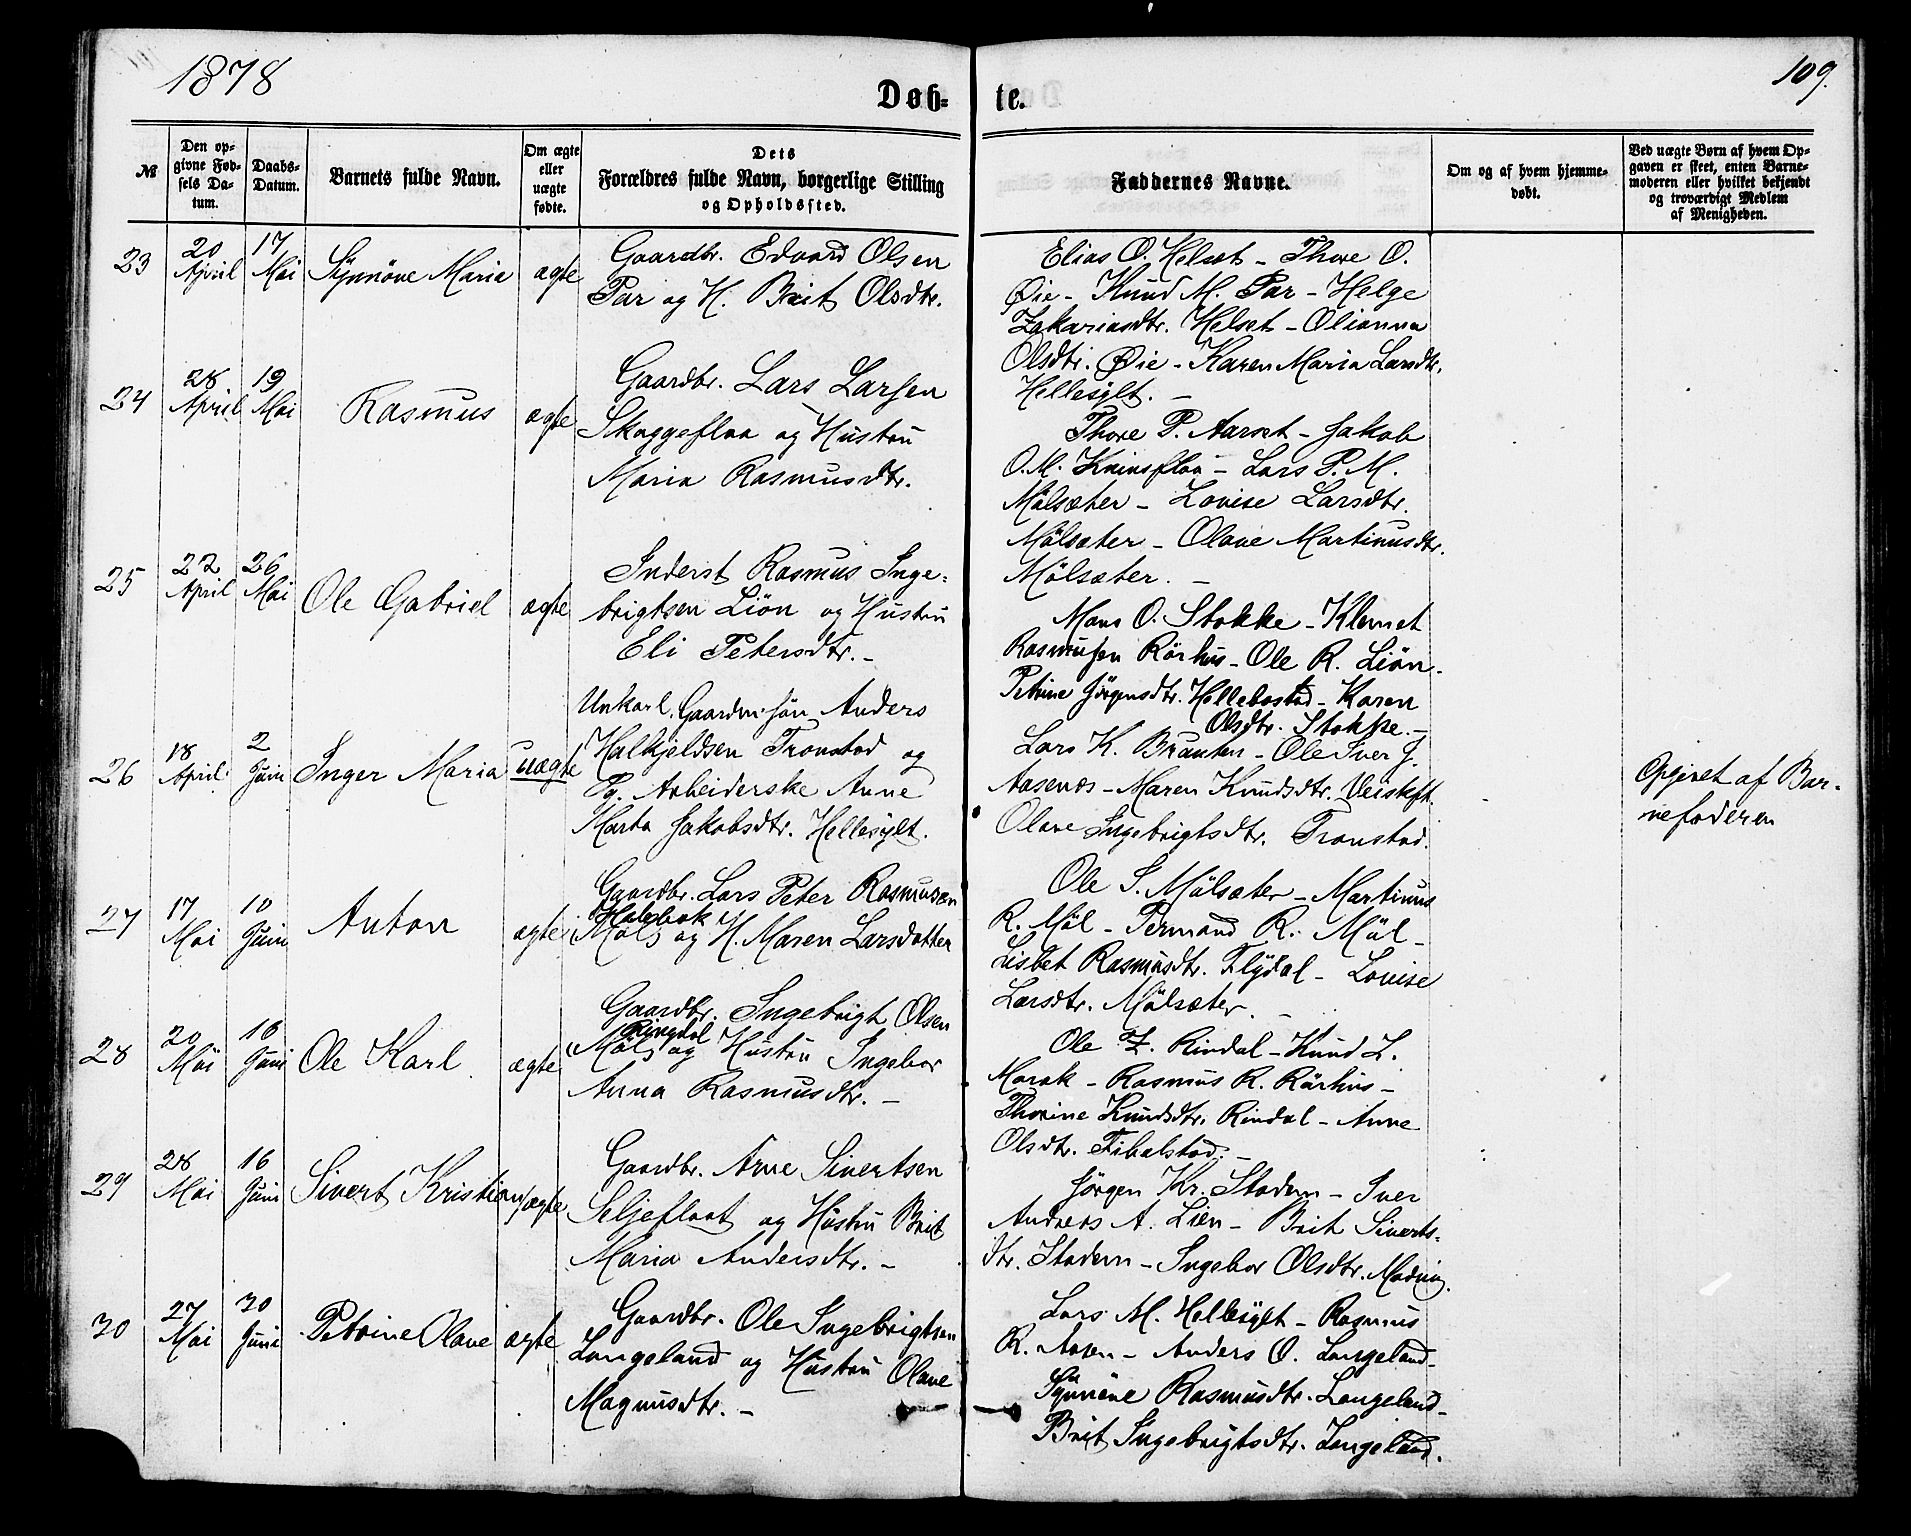 1878
109.
Døb-
te.
№
Den op-
givne Fød-
sels Da-
tum.
Daabs-
Datum.
Barnets fulde Navn.
Om ægte
eller
uægte
fødte.
Dets
Forældres fulde Navn, borgerlige Stilling
og Opholdssted.
Faddernes Navne.
Om og af hvem hjemme-
døbt.
Ved uægte Børn af hvem Op-
gaven er skeet, enten Barne-
moderen eller hvilket bekjendt
og troværdigt Medlem
af Menigheden.
23
20
April
17
Mai
Synnöve Maria
ægte
Gaardbr. Edvard Olsen
Tar og H. Brit Olsdtr.
Elias O. Helset - Thore O.
Øie - Knud M. Tar - Helge
Zakariasdtr. Helset - Olianna
Olsdtr. Øie - Karen Maria Larsdtr.
Hellesylt. -
24
28
April
19
Mai
Rasmus
ægte
Gaardbr. Lars Larsen
Skaggeflaa og Hustru
Maria Rasmusdtr.
Thore P. Aarset - Jakob
O. M. Knivsflaa - Lars P. M.
Mölsæter - Lovise Larsdtr.
Mölsæter - Olave Martinusdtr.
Mölsæter. -
25
22
April
26
Mai
Ole Gabriel
ægte
Inderst Rasmus Inge-
brigtsen Liön og Hustru
Eli Petersdtr. -
Mons O. Stokke - Klemet
Rasmusen Rörhus - Ole R. Liön.
Petrine Jörgensdtr. Hellebostad - Karen
Olsdtr. Stokke. -
26
18
April
2
Juni
Inger Maria
uægte
Unkarl. Gaardm. sön Anders
Halkjeldsen Tronstad og
Pg. Arbeiderske Anne
Marta Jakobsdtr. Hellesylt.
Lars K. Brunten - Ole Iver J.
Aasenæs - Maren Knudsdtr.
Olave Ingebrigtsdtr. Tronstad.
Opgivet af Bar-
nefaderen
27
17
Mai
10
Juni
Anton
ægte
Gaardbr. Lars Peter Rasmusen
Holebak
(Möl) og H. Maren Larsdatter
Ole S. Mölsæter - Martinus
R. Möl - Permand R. Möl -
Lisbet Rasmusdtr. Flydal - Lovise
Larsdtr. Mölsæter. -
28
20
Mai
16
Juni
Ole Karl
ægte
Gaardbr. Ingebrigt Olsen
Ringdal
(Möl) og Hustru Ingebor
Anna Rasmusdtr. -
Ole Z. Rindal - Knud L.
Marak - Rasmus R. Rörhus -
Thorine Knudsdtr. Rindal - Anne
Olsdtr. Fibelstad. -
29
28
Mai
16
Juni
Sivert Kristian
ægte
Gaardbr. Arne Sivertsen
Seljeflaat og Hustru Brit
Maria Andersdtr. -
Jörgen Kr. Stadem - Iver
Andreas A. Lien - Brit Siverts-
dtr. Stadem - Ingebor Olsdtr.
30
27
Mai
30
Juni
Petrine Olave
ægte
Gaardbr. Ole Ingebrigtsen
Langeland og Hustru Olave
Magnusdtr. -
Lars M. Hellesylt - Rasmus
R. Aasen - Anders O. Langeland -
Synnöve Rasmusdtr. Langeland -
Brit Ingebrigtsdtr. Langeland.